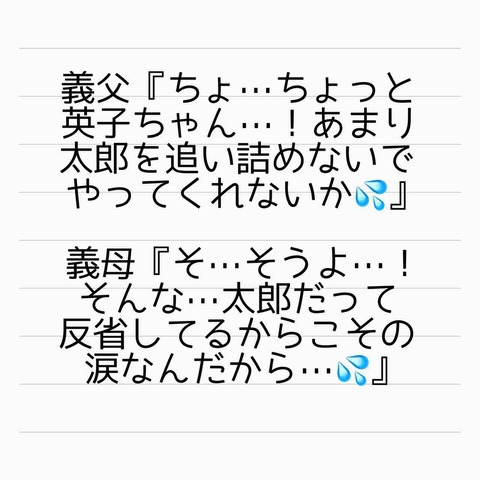 義父『ちょ…ちょっと
英子ちゃん…！あまり
太郎を追い詰めないで
やってくれないか💦』
義母『そ…そうよ…！
そんな…太郎だって
反省してるからこその
涙なんだから…💦』